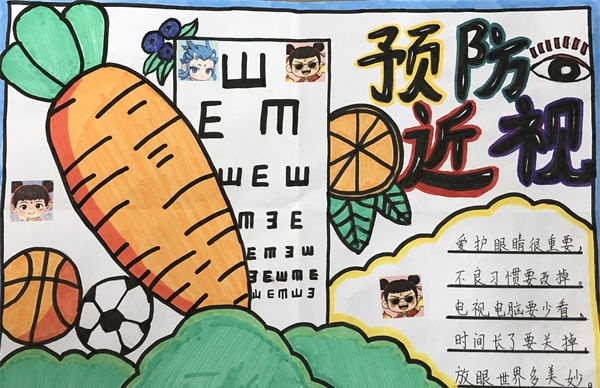 预防
近视
爱护眼睛很重要,
不良习惯要改掉。
电视电脑要少看,
时间长了要关掉,
放眼世界多美妙.